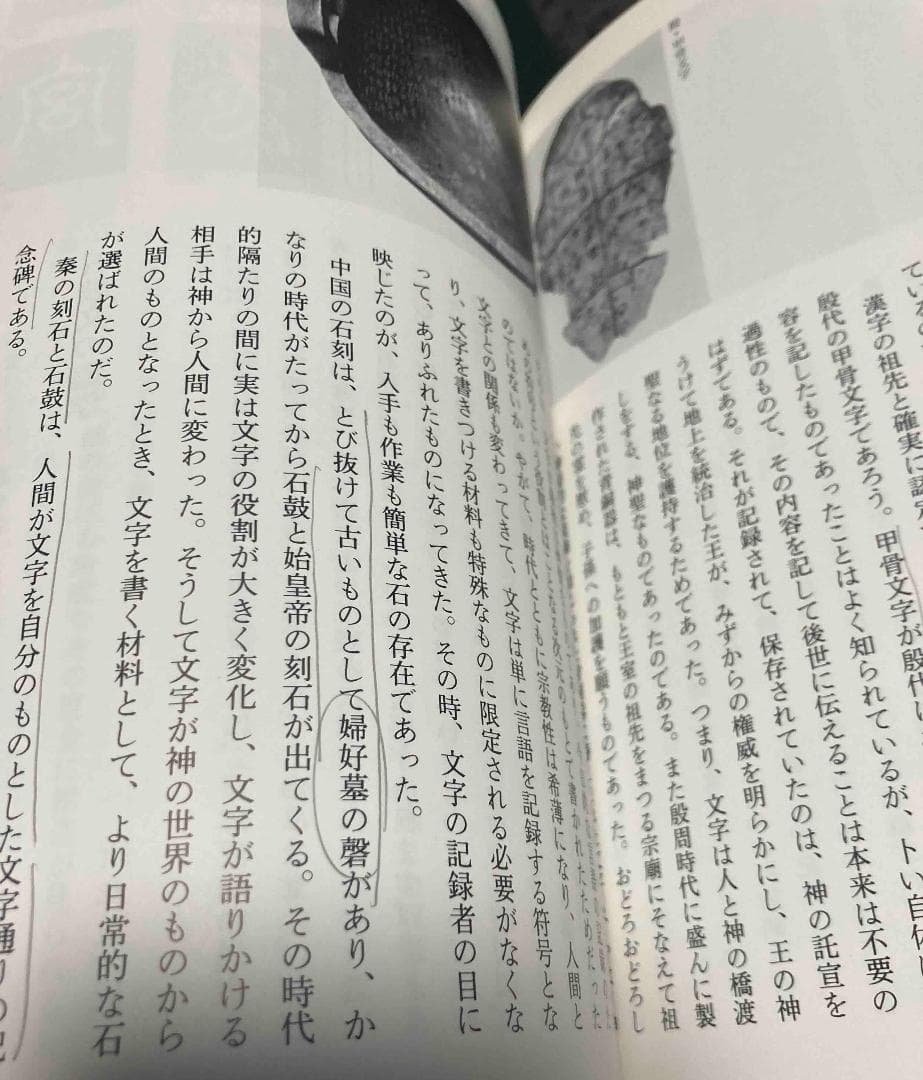 殷・甲骨文字
漢字の祖先と確実に認定
殷代の甲骨文字であろう。甲骨文字が殷代に
容を記したものであったことはよく知られているが、卜い自体
過性のもので、その内容を記して後世に伝えることは本来は不要の
はずである。それが記録されて、保存されていたのは、神の託宣を
うけて地上を統治した王が、みずからの権威を明らかにし、王の神
聖なる地位を護持するためであった。つまり、文字は人と神の橋渡
しをする、神聖なものであったのである。また殷周時代に盛んに製
作された青銅器は、もともと王室の祖先をまつる宗廟にそなえて祖
先の霊を慰め、子孫への加護を願うものであった。おどろおどろし
のではないか。やがて、時代とともに宗教性は希薄になり、人間と
文字との関係も変わってきて、文字は単に言語を記録する符号とな
り、文字を書きつける材料も特殊なものに限定される必要がなくな
って、ありふれたものになってきた。その時、文字の記録者の目に
映じたのが、入手も作業も簡単な石の存在であった。
中国の石刻は、とび抜けて古いものとして婦好墓の磬があり、か
なりの時代がたってから石鼓と始皇帝の刻石が出てくる。その時代
的隔たりの間に実は文字の役割が大きく変化し、文字が語りかける
相手は神から人間に変わった。そうして文字が神の世界のものから
人間のものとなったとき、文字を書く材料として、より日常的な石
が選ばれたのだ。
秦の刻石と石鼓は、人間が文字を自分のものとした文字通りの記
念碑である。